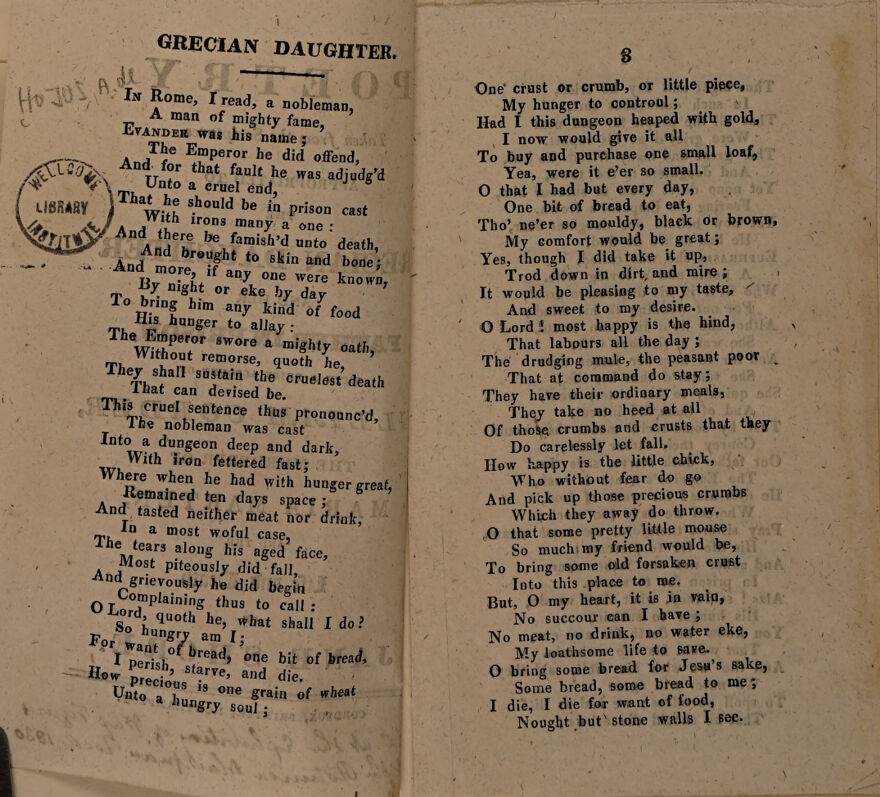 GRECIAN DAUGHTER.
IN Rome, I read, a nobleman,
A man of mighty fame,
EVANDER was his name;
The Emperor he did offend,
And for that fault he was adjudg'd
Unto a cruel end,
That he should be in prison cast
With irons many a one:
And there be famish'd unto death,
And brought to skin and bone;
And more, if any one were known,
By night or eke by day
To bring him any kind of food
His hunger to allay:
The Emperor swore a mighty oath,
Without remorse, quoth he,
They shall sustain the cruelest death
That can devised be.
This cruel sentence thus pronounc'd,
The nobleman was cast
Into a dungeon deep and dark,
With iron fettered fast;
Where when he had with hunger great,
Remained ten days space;
And tasted neither meat nor drink,
In a most woful case,
The tears along his aged face,
Most piteously did fall,
And grievously he did begin
Complaining thus to call:
O Lord, quoth he, what shall I do?
So hungry am I;
For want of bread, one bit of bread,
I perish, starve, and die.
How precious is one grain of wheat
Unto a hungry soul;
LIBRARY
3
One crust or crumb, or little piece,
My hunger to controul;
Had I this dungeon heaped with gold,
I now would give it all
To buy and purchase one small loaf,
Yea, were it e'er so small.
O that I had but every day,
One bit of bread to eat,
Tho' ne'er so mouldy, black or brown,
My comfort would be great;
Yes, though I did take it up,
Trod down in dirt and mire;
It would be pleasing to my taste,
And sweet to my desire.
O Lord! most happy is the hind,
That labours all the day;
The drudging mule, the peasant poor
That at command do stay;
They have their ordinary meals,
They take no heed at all
Of those crumbs and crusts that they
Do carelessly let fall.
How happy is the little chick,
Who without fear do go
And pick up those precious crumbs
Which they away do throw.
O that some pretty little mouse
So much my friend would be,
To bring some old forsaken crust
Into this place to me.
But, O my heart, it is in vain,
No succour can I have;
No meat, no drink, no water eke,
My loathsome life to save.
O bring some bread for Jesu's sake,
Some bread, some bread to me;
I die, I die for want of food,
Nought but stone walls I see.